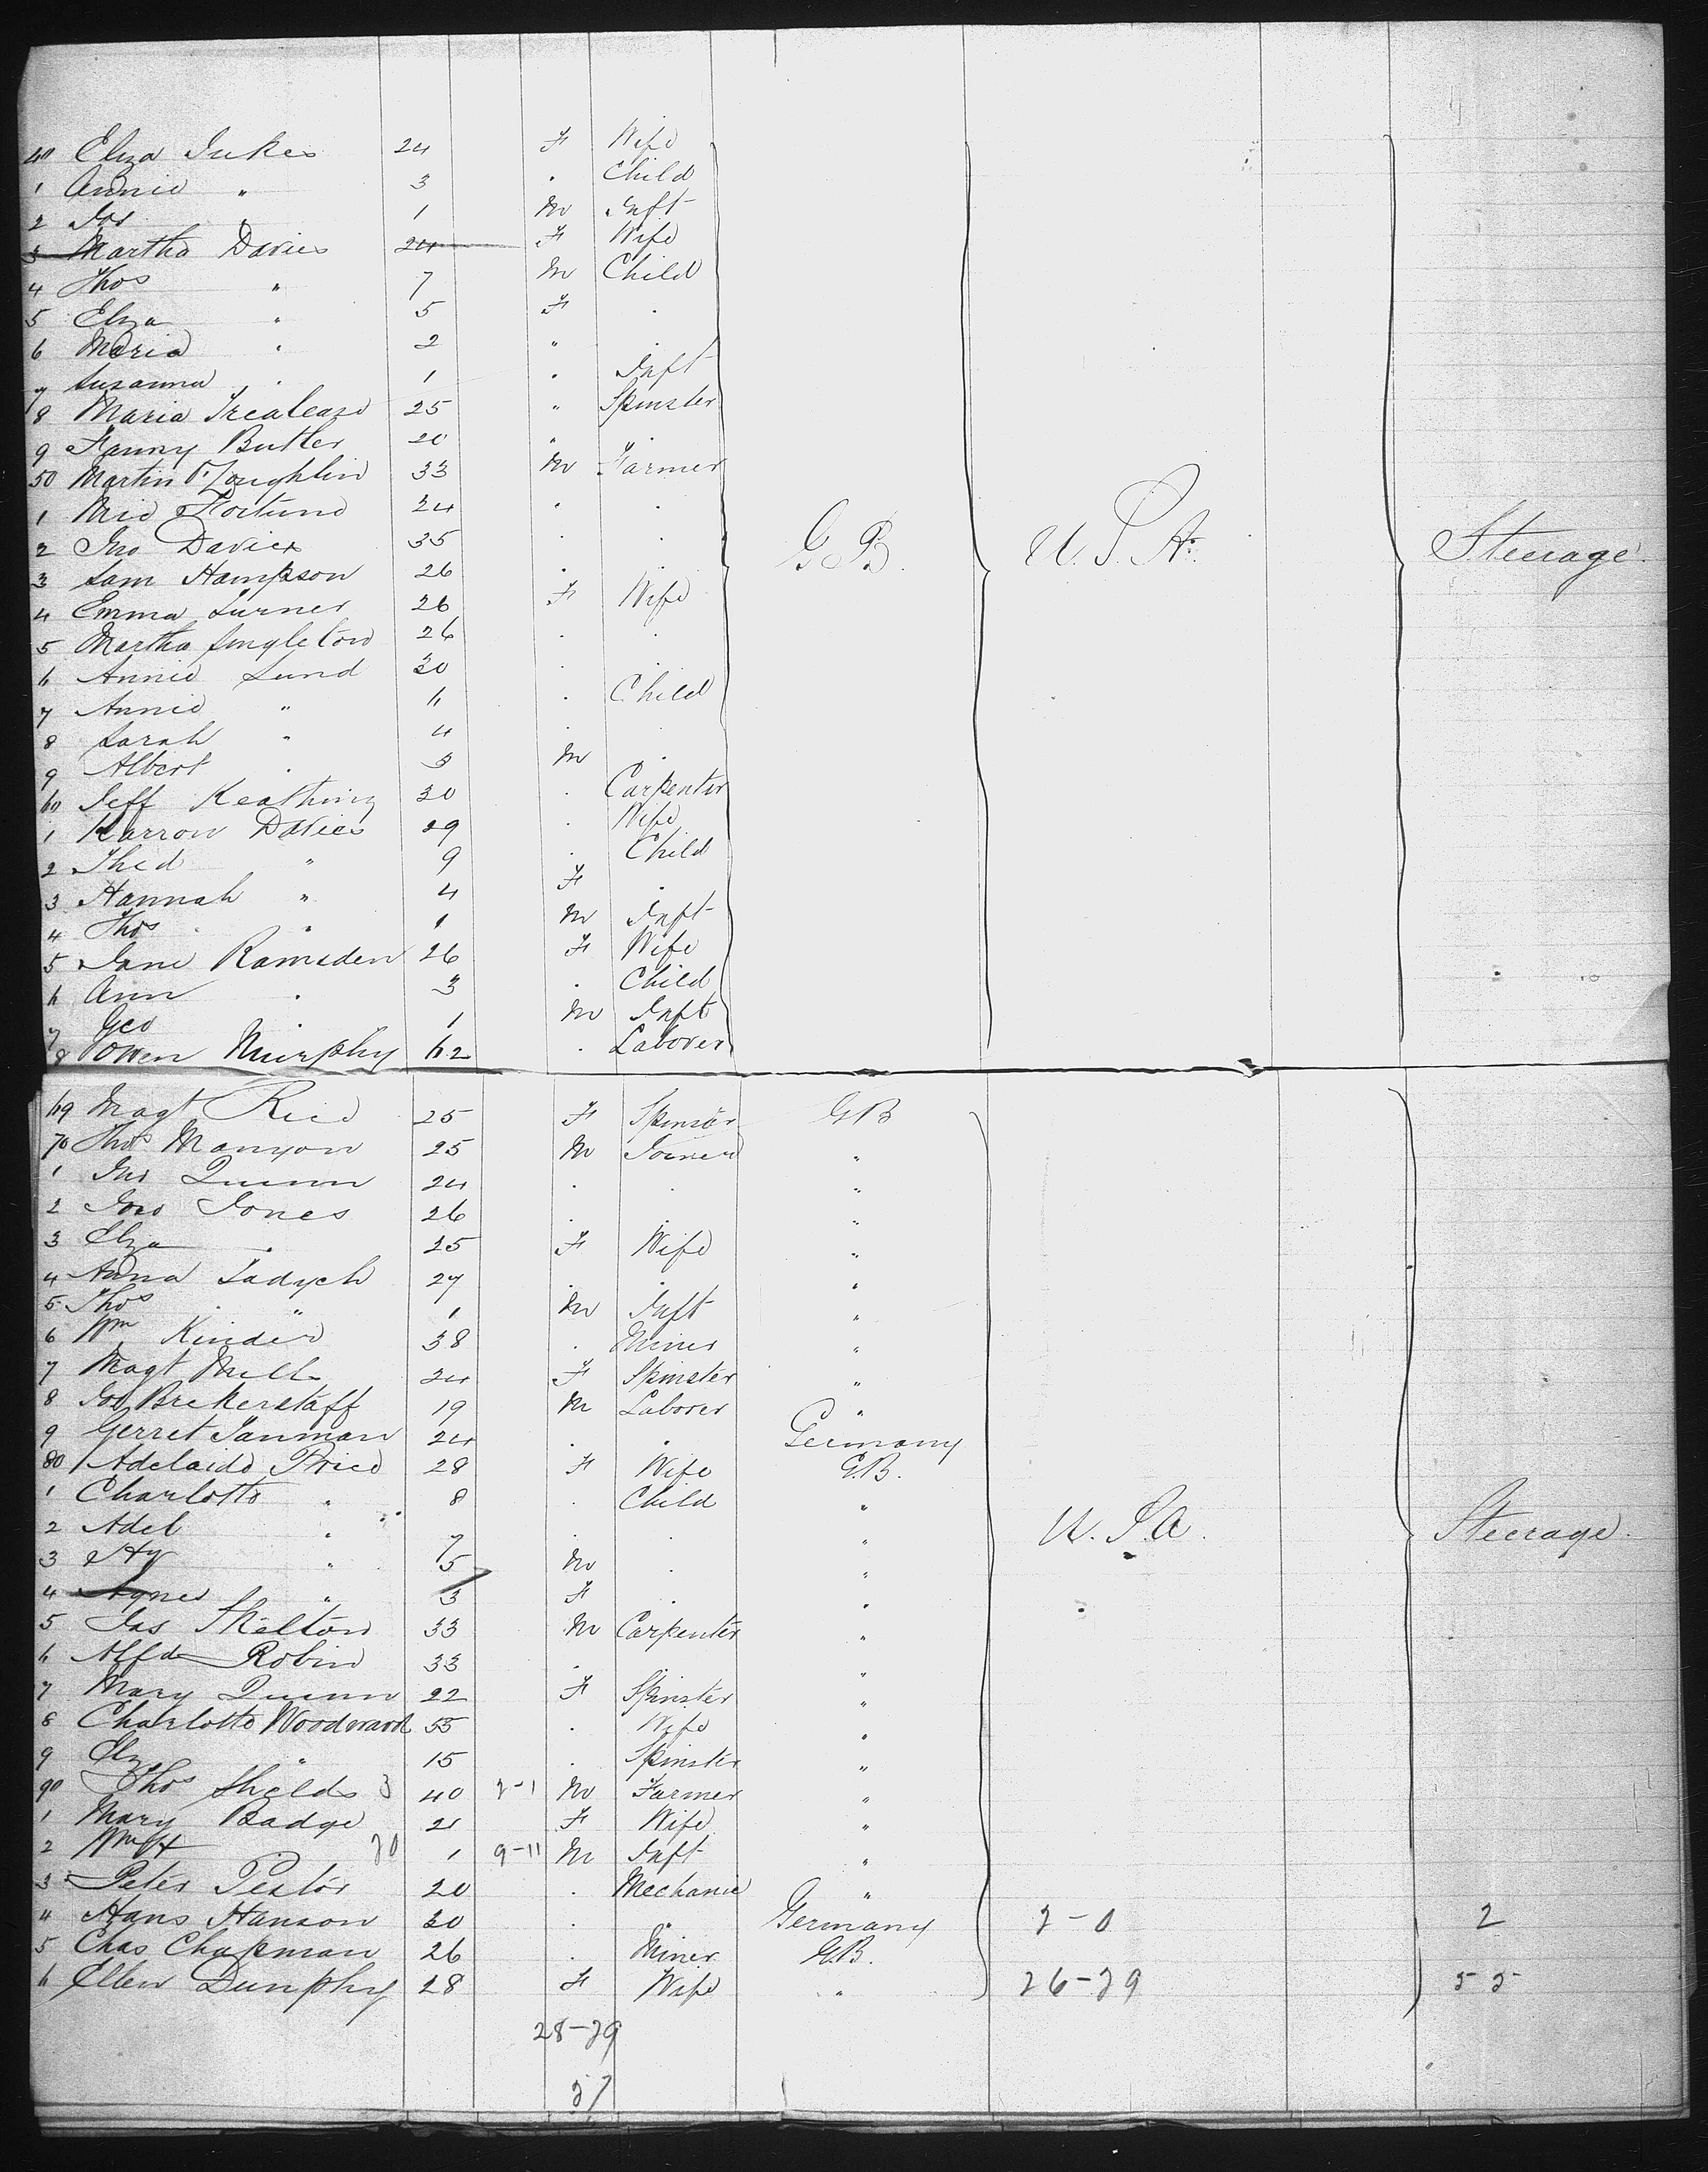 40 Eliza Jukes 24 F Wife
1 Annie " 3 . Child
2 Jos " 1 M Inft
3 Martha Davies 24 F Wife
4 Thos " 7 M Child
5 Eliza " 5 F .
6 Maria " 2 " .
7 Susanna . 1 . Inft
8 Maria Trealease 25 " Spinster
9 Fanny Butler 20 " "
50 Martin O'Loughlin 33 M Farmer
1 Mic Fortune 24 . .
2 Jno Davies 35 . .
3 Sam Hampson 26 . .
G.B. U.S.A. Steerage.
4 Emma Turner 26 F Wife
5 Martha Singleton 26 . .
6 Annie Lund 30 . .
7 Annie " 6 . Child
8 Sarah " 4 . .
9 Albert . 3 M .
60 Jeff Keathing 30 . Carpenter
1 Karron Davies 29 . Wife
2 Thed " 9 . Child
3 Hannah " 4 F .
4 Thos " 1 M Inft
5 Jane Ramsden 26 F Wife
6 Ann . 3 . Child
7 Geo . 1 M Inft
8 Owen Murphy 62 . Laborer
69 Magt Rice 25 F Spinster GB
70 Thos Manyon 25 M Joiner "
1 Jno Quinn 24 . . "
2 Jno Jones 26 . . "
3 Eliza . 25 F Wife "
4 Anna Tadych 27 . . "
5 Thos " 1 M Inft "
6 Wm Kinder 38 . Miner "
7 Magt Mills 24 F Spinster "
8 Jos Brekerstaff 19 M Laborer "
9 Gerret Janman 24 . . Germany
80 Adelaide Price 28 F Wife G.B.
1 Charlotte " 8 . Child "
2 Adel " 7 . . "
U.S.A. Steerage.
3 Hy " 5 M . "
4 Agnes " 3 F . "
5 Jas Skelton 33 M Carpenter "
6 Alfd Robin 33 . . "
7 Mary Quinn 22 F Spinster "
8 Charlotte Woodward 55 . Wife "
9 Eliz " 15 . Spinster "
90 Thos Shields 3 40 2-1 M Farmer "
1 Mary Badge 21 F Wife "
2 Wm H 20 1 9-11 M Inft "
3 Peter Pestor 20 . Mechanic "
4 Hans Hanson 30 . " Germany 2-0 2
5 Chas Chapman 26 . Miner G.B.
6 Ellen Dunphy 28 F Wife " 26-29 55
28-29
57